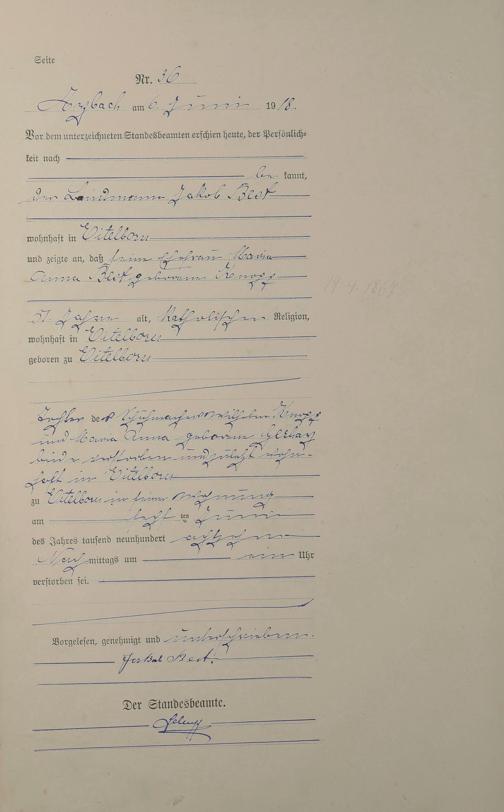 Seite
Nr. 36
am 6. Juni 1918.
Vor dem unterzeichneten Standesbeamten erschien heute, der Persönlich-
keit nach
be kannt,
der Landmann Jakob Best
wohnhaft in Eitelborn
und zeigte an, daß seine Ehefrau Maria
Anna Best geborene Knopp
51 Jahre alt, Katholischer Religion,
wohnhaft in Eitelborn
geboren zu Eitelborn
Tochter des Schuhmachers Wilhelm Knopp
und Maria Anna geborene
beide verstorben und zuletzt wohn-
haft in Eitelborn
zu Eitelborn in seiner Wohnung
am ten Juni
des Jahres tausend neunhundert achtzehn
Nach mittags um ein Uhr
verstorben sei.
Vorgelesen, genehmigt und unterschrieben.
Jakob Best
Der Standesbeamte.